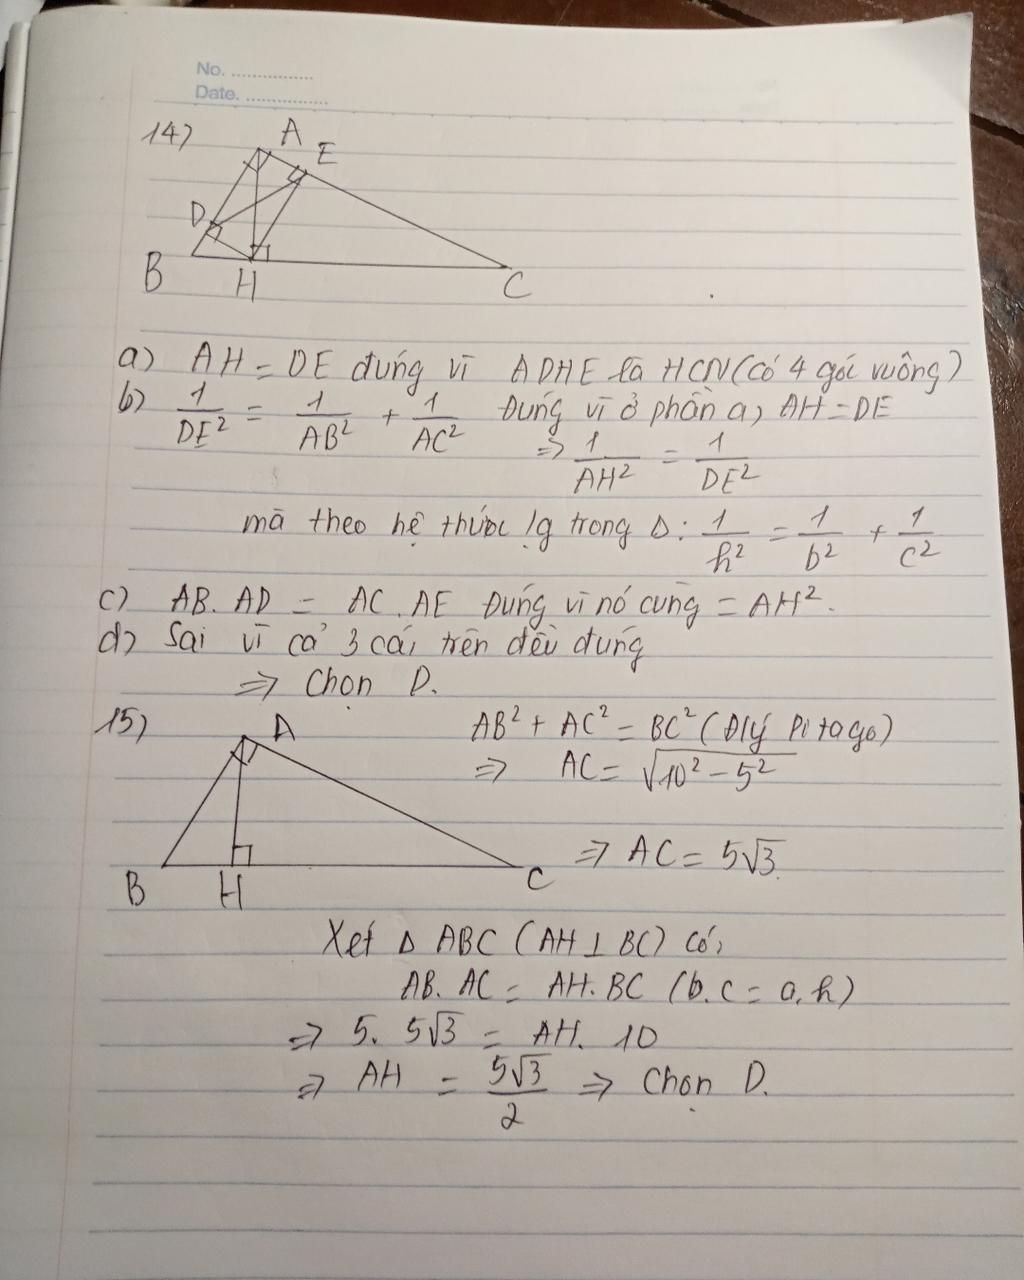 No. ................
Date. ................
14)
A
E
D
B
H
C
a) AH = DE đúng vì ADHE là HCN (có 4 góc vuông)
b) 1/DE² = 1/AB² + 1/AC² Đúng vì ở phần a, AH = DE
=> 1/AH² = 1/DE²
mà theo hệ thức lg trong Δ: 1/h² = 1/b² + 1/c²
c) AB. AD = AC. AE Đúng vì nó cùng = AH².
d) Sai vì cả 3 cái trên đều đúng
=> Chọn D.
15)
A
B
H
C
AB² + AC² = BC² (Đlý Pitago)
=> AC = √(10² - 5²)
=> AC = 5√3
Xét Δ ABC (AH ⊥ BC) có,
AB. AC = AH. BC (b.c = a.h)
=> 5. 5√3 = AH. 10
=> AH = 5√3/2 => Chọn D.